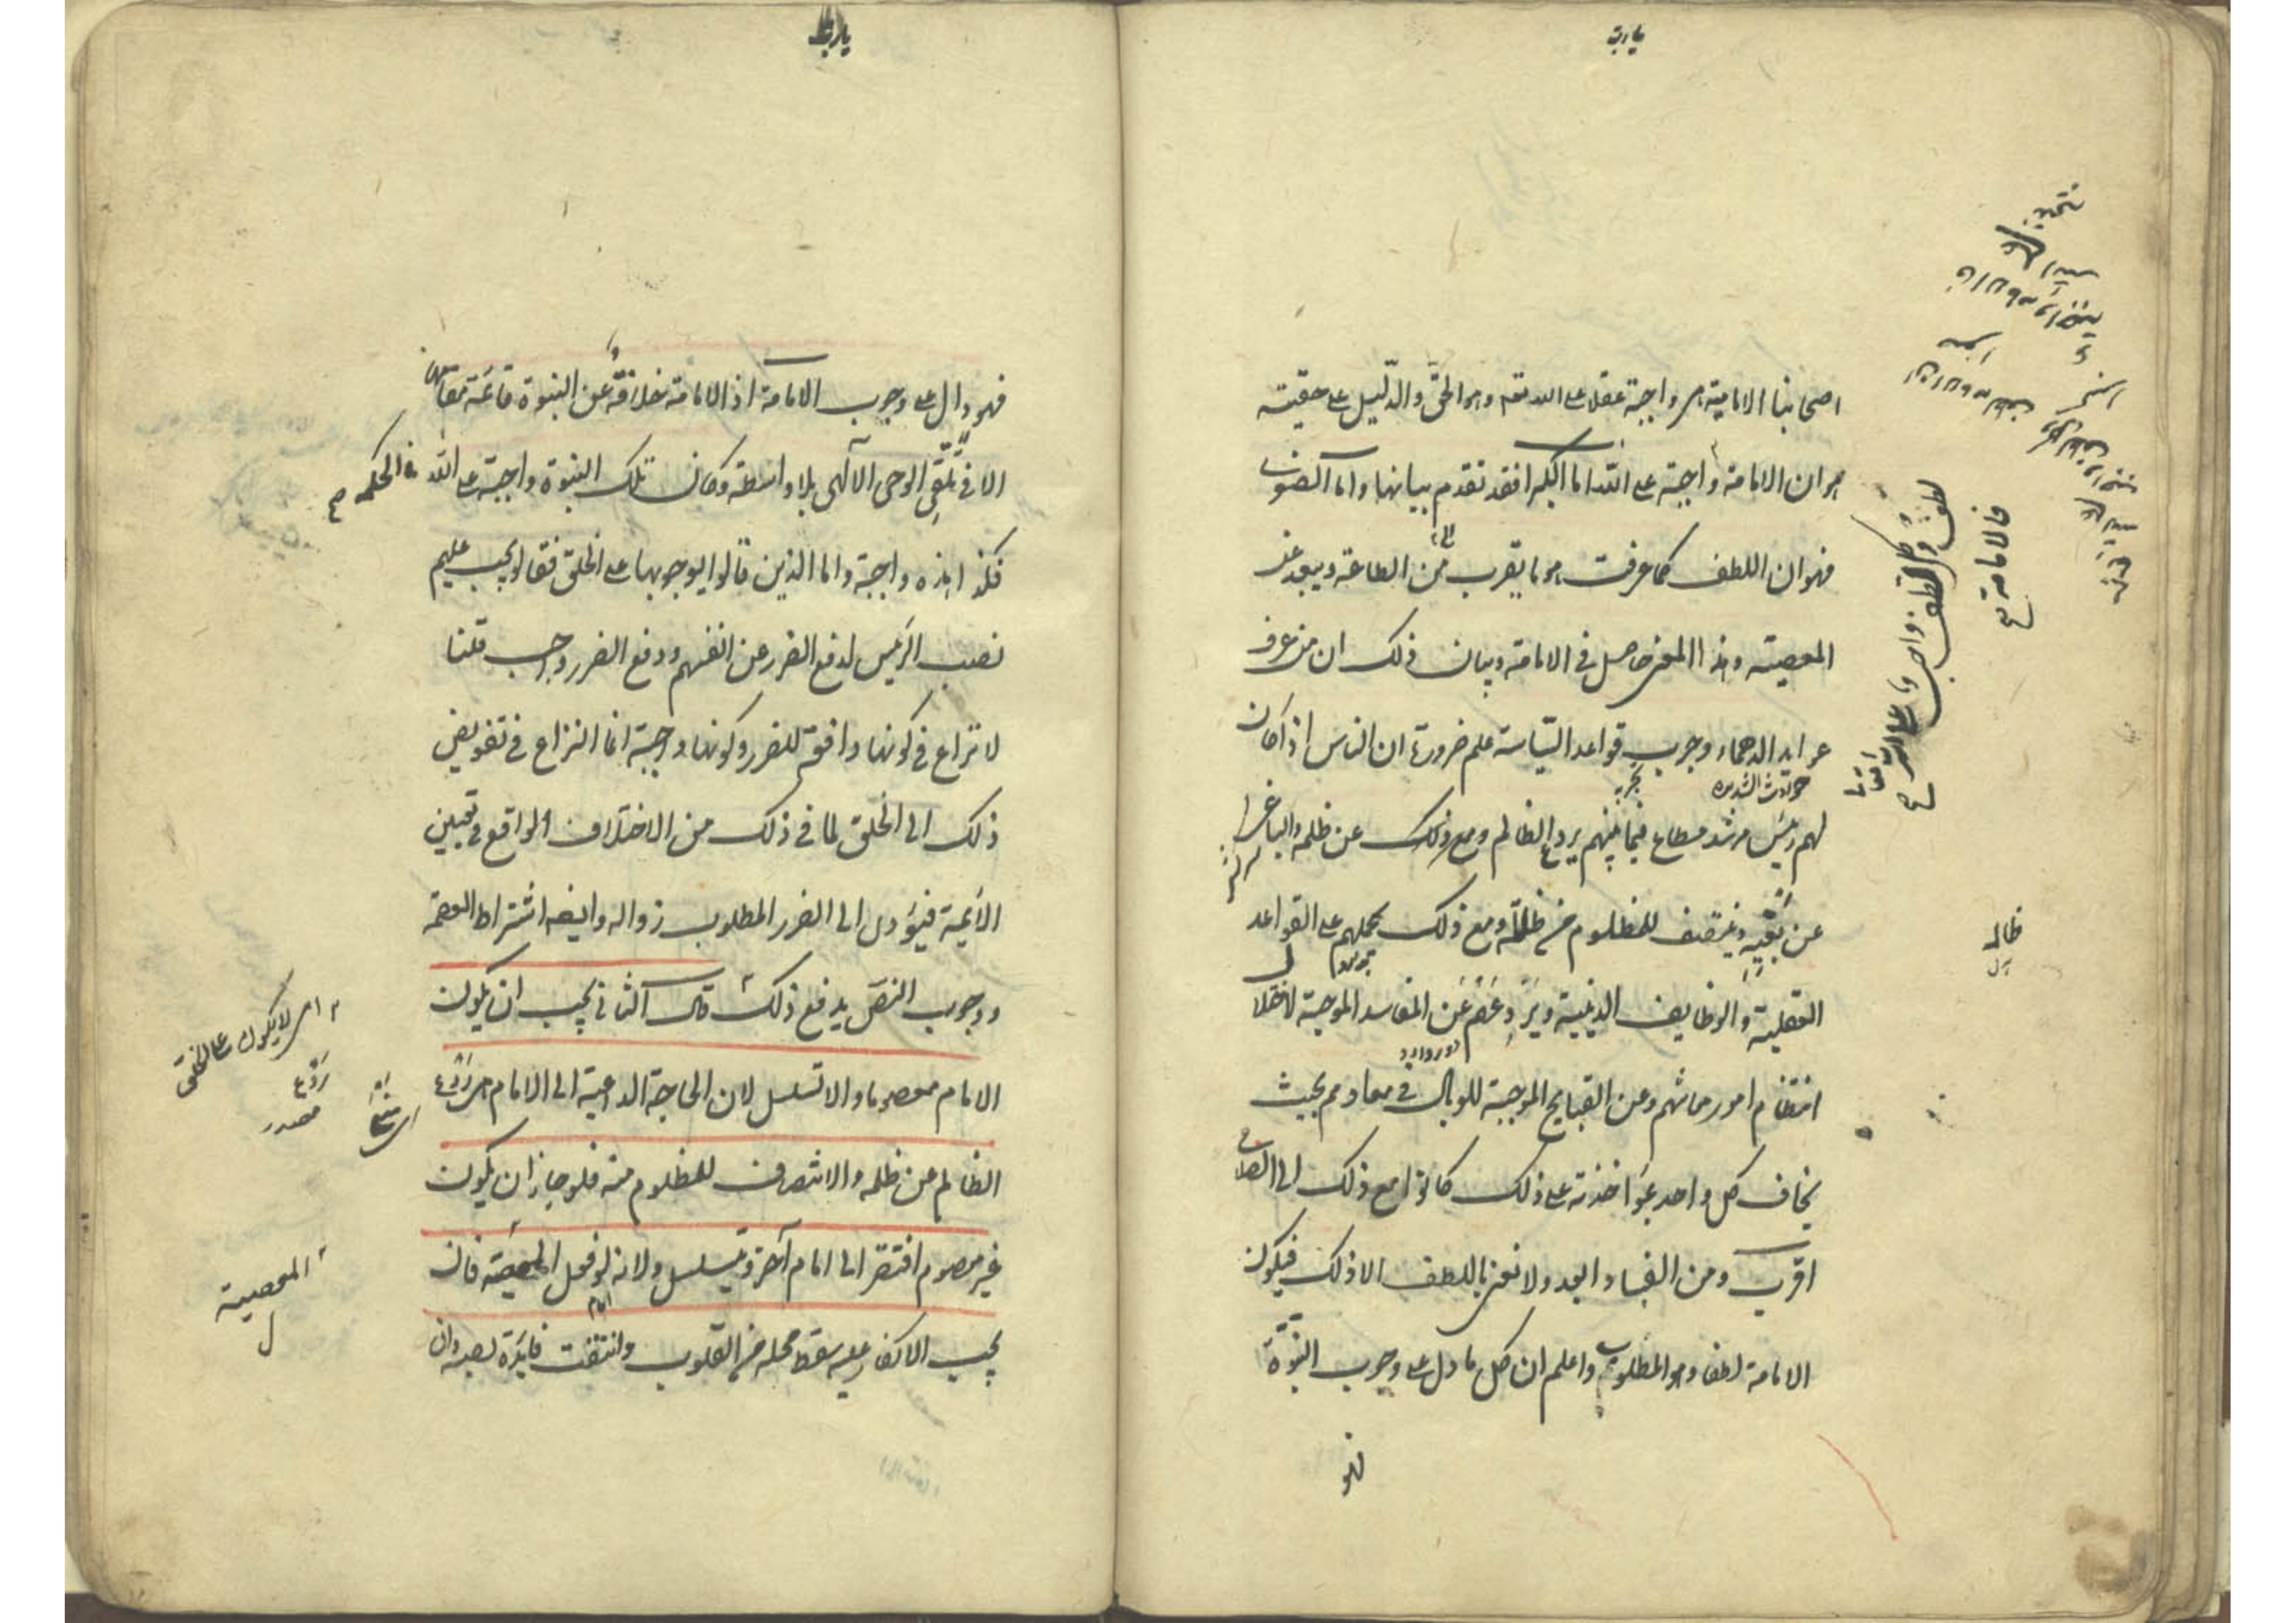 اصحابنا الامامية هى واجبة عقلا على الله تعه وهو الحق والدليل على حقيته
هو ان الامامة واجبة على الله اما الكبرا فقد تقدم بيانها واما الصغرى
فهو ان اللطف كما عرفت هو ما يقرب من الطاعة ويبعد عن
المعصيته وهذا المعنى حاصل فى الامامة وبيان ذلك ان من عرف
عوايد الدهماء وجرب قواعد السّياسة علم ضرورة ان الناس اذا كان
حوادث الشديده
تجربه
لهم رئيس مرشد مطاع فيما بينهم يردع الظالم ومع ذلك عن ظلمه والباغى
عن بغيه وينتصف للمظلوم من ظالمه ومع ذلك يحملهم على القواعد
العقلية والوظايف الدينية ويردعهم عن المفاسد الموجبة لاختلال
انتظام امور معاشهم وعن القبايح الموجبة للوبال فى معادهم بحيث
يخاف كل واحد مؤاخذته على ذلك كانوا مع ذلك الى الصلاح
اقرب ومن الفساد ابعد ولا نعنى باللطف الا ذلك فيكون
الامامة لطفا وهو المطلوب واعلم ان كل ما دل على وجوب النبوّة
فهو
لطف وكل لطف واجب على الله تعالى
فالامامة
ظالمه
بدل
فهو دال على وجوب الامامة اذ الامامة خلافة عن النبوة قائمة مقامها
الا فى تلقّى الوحى الآلهى بلا واسطة وكان تلك النبوة واجبة على الله
فى الحكمه
فكذا هذه واجبة واما الذين قالوا بوجوبها على الخلق فقالوا يجب عليهم
نصب الرئيس لدفع الضرر عن انفسهم ودفع الضرر واجب قلنا
لا نزاع فى كونها دافعة للضرر وكونها واجبة انما النزاع فى تفويض
ذلك الى الخلق لما فى ذلك من الاختلاف الواقع فى تعيين
الائمية فيؤدى الى الضرر المطلوب زواله وايضه اشتراط العصمة
ووجوب النص يدفع ذلك قال الثانى يجب ان يكون
الامام معصوما والا تسلسل لان الحاجة الداعية الى الامام هى ردع
الظالم عن ظلمه والانتصاف للمظلوم منه فلو جاز ان يكون
غير معصوم افتقر الى امام آخر وتسلسل ولانه لو فعل المعصية فان
يجب الانكار عليه سقط محله من القلوب وانتفت فايدة نصبه وان
ردع
مصدر
المعصية
ل